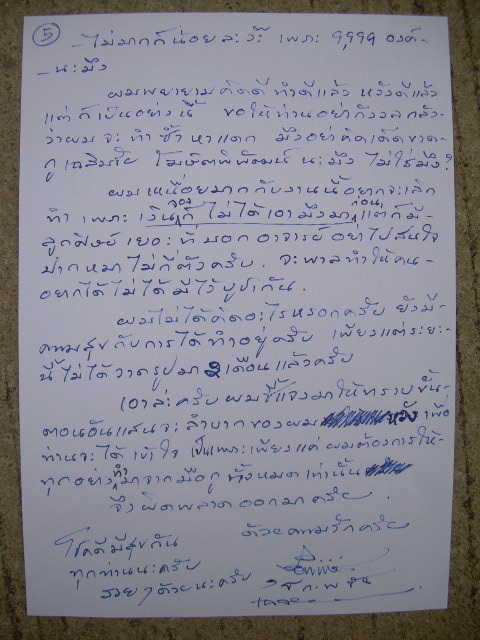 5
- ไม่มากก็น้อยละวะ เพราะ 9,999 องค์ -
- นะมึง
ผมพยายามคิดดี ทำดีแล้ว หวังดีแล้ว
แต่ก็เป็นอย่างนี้ ขอให้ท่านอย่ากังวลกลัว
ว่าผมจะทำซ้ำหาแดก มึงอย่าคิดเด็ดขาด
กูเฉลิมชัย โฆษิตพิพัฒน์ นะมึง ไม่ใช่มึง?
ผมเหนื่อยมากกับงานนี้ อยากจะเลิก
ทำ เพราะเงินจองก็ไม่ได้เอามึงมาก่อน แต่ก็มี
ลูกศิษย์เยอะที่บอกอาจารย์อย่าไปสนใจ
ปากหมาไม่กี่ตัวครับ. จะพาลทำให้คน
อยากได้ไม่ได้มีไว้บูชากัน.
ผมไม่ได้คิดอะไรหรอกครับ ยังมี
ความสุขกับการได้ทำอยู่ครับ เพียงแต่ระยะ-
นี้ไม่ได้วาดรูปมา 2 เดือนแล้วครับ
เอาล่ะครับ ผมชี้แจงมาให้ทราบขั้น-
ตอนอันแสนจะลำบากของผม หวังเพื่อ
ท่านจะได้เข้าใจ เป็นเพราะเพียงแค่ผมต้องการให้-
ทุกอย่างทำมาจากมือกูทั้งหมดเท่านั้น
จึงผิดพลาดออกมาครับ.
ด้วยความรักครับ
โชคดีมีสุขกัน
ทุกท่านนะครับ
รวยๆ ด้วยนะครับ